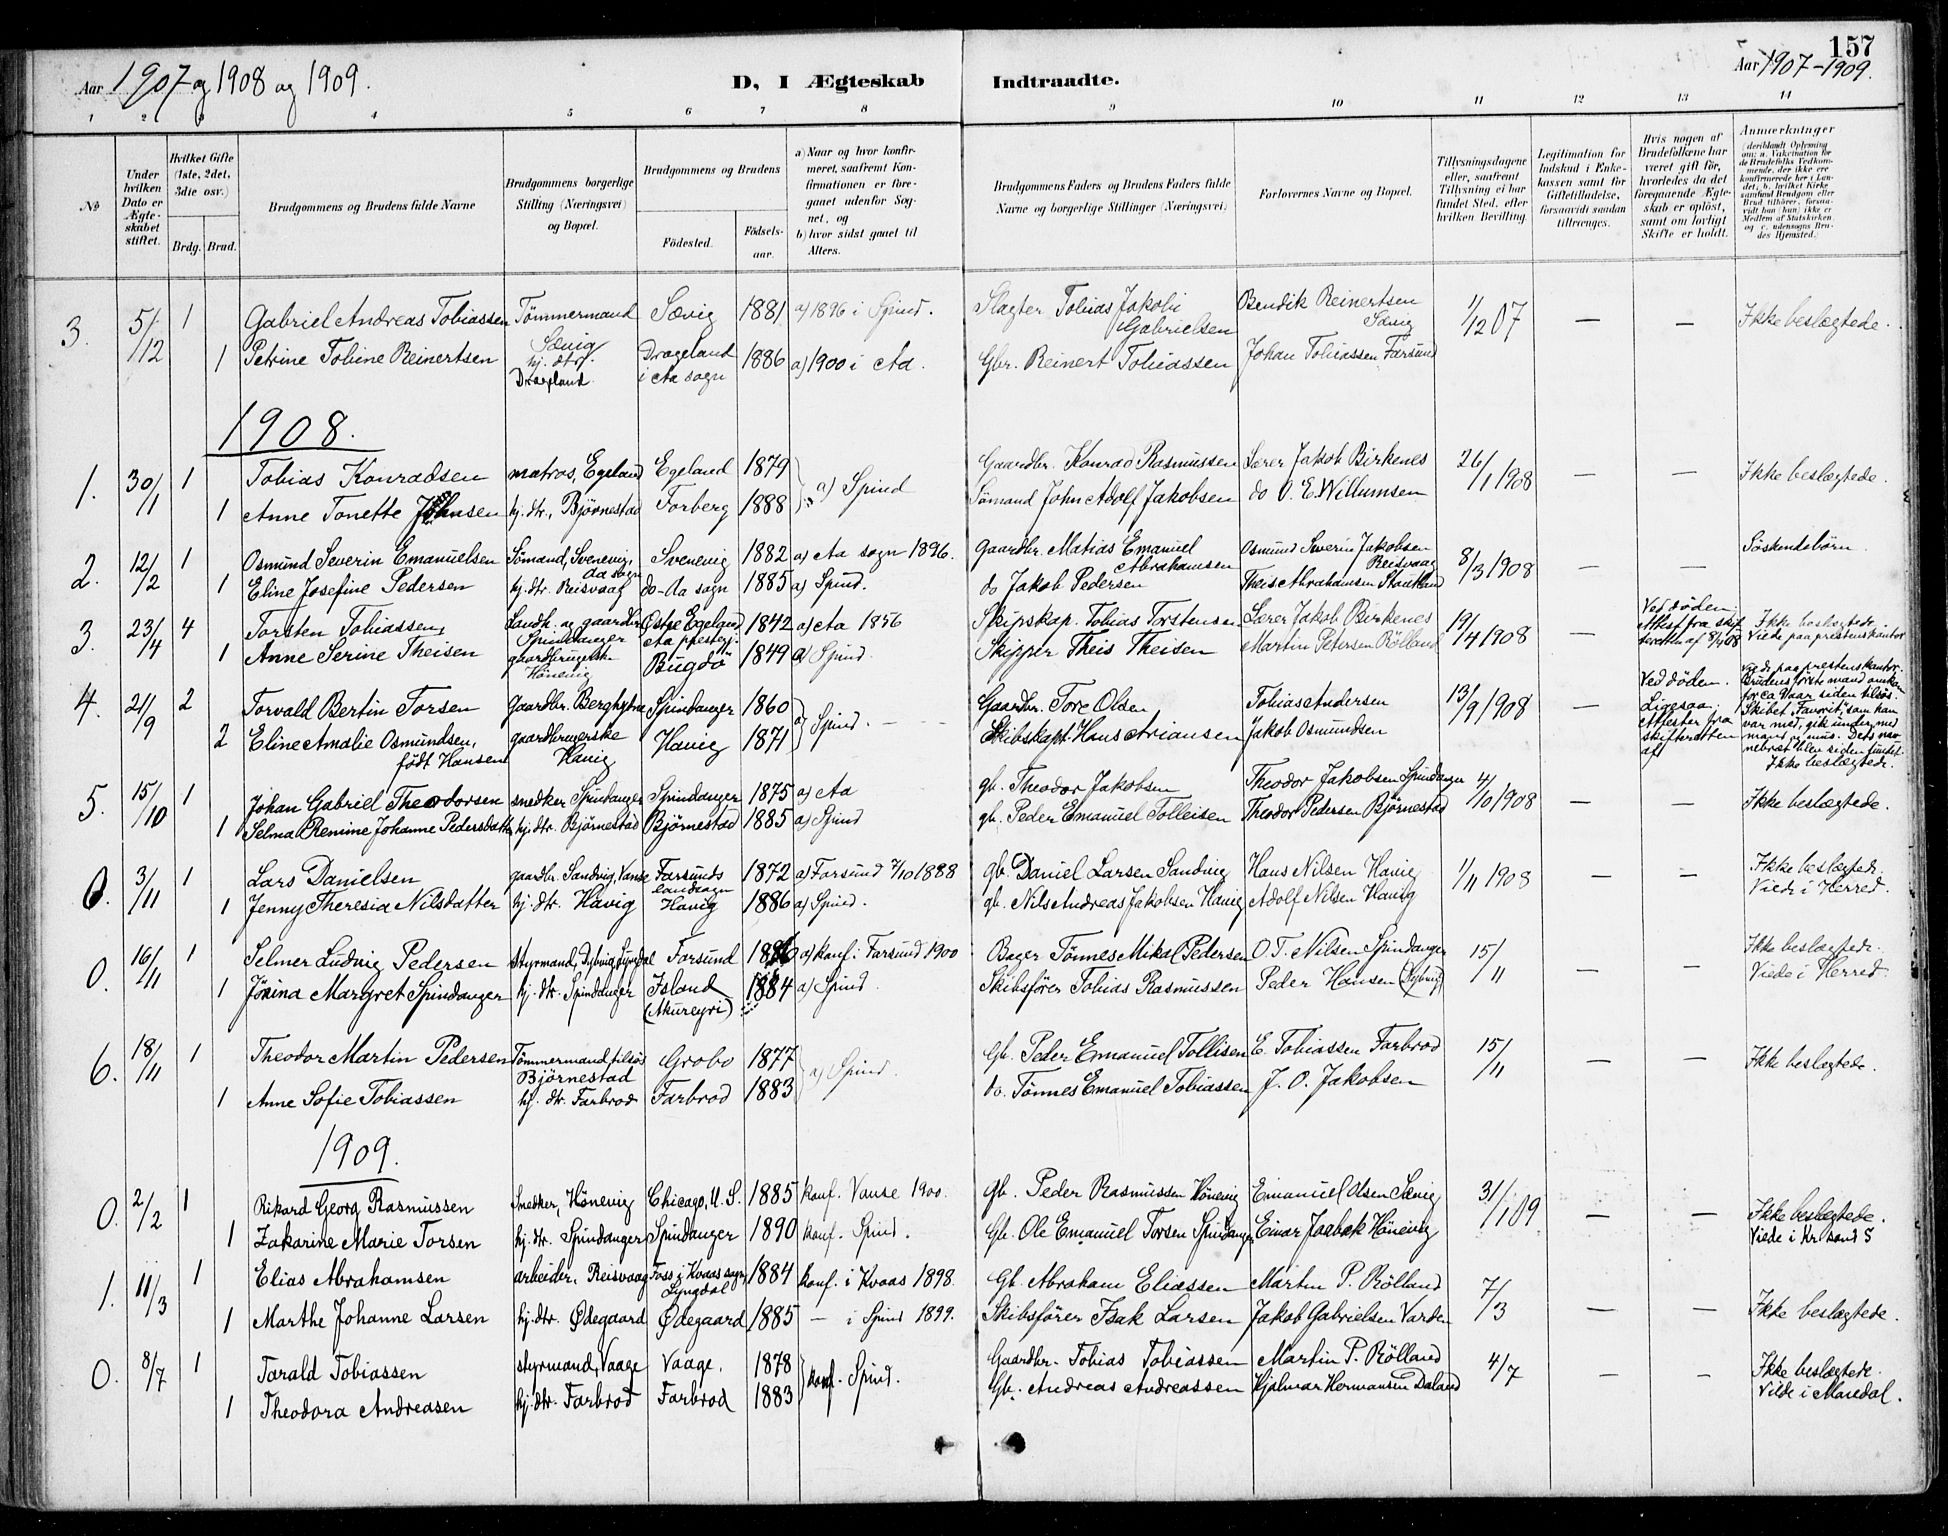 157
Aar 1907 og 1908 og 1909.
D, I Ægteskab Indtraadte.
Aar 1907-1909.
1 2 3 4 5 6 7 8 9 10 11 12 13 14
№
Under hvilken Dato er Ægteskabet stiftet.
Hvilket Gifte (1ste, 2det, 3die osv.)
Brdg. Brud.
Brudgommens og Brudens fulde Navne
Brudgommens borgerlige Stilling (Næringsvei) og Bopæl.
Brudgommens og Brudens
Fødested.
Fødselsaar.
a) Naar og hvor konfirmeret, saafremt Konfirmationen er foregaaet udenfor Sognet, og
b) hvor sidst gaaet til Alters.
Brudgommens Faders og Brudens Faders fulde Navne og borgerlige Stillinger (Næringsvei)
Forlovernes Navne og Bopæl.
Tillysningsdagene eller, saafremt Tillysning ei har fundet Sted, efter hvilken Bevilling
Legitimation for Indskud i Enkekassen samt for Giftetilladelse, forsaavidt saadan tiltrænges.
Hvis nogen af Brudefolkene har været gift før, hvorledes da det foregaaende Ægteskab er opløst, samt om lovligt Skifte er holdt.
Anmærkninger (deriblandt Oplysning om: a. Vakcination for de Brudefolks Vedkommende, der ikke ere konfirmerede her i Landet; b. hvilket Kirkesamfund Brudgom eller Brud tilhører, forsaavidt han (hun) ikke er Medlem af Statskirken, og c. udensogns Brudes Hjemsted.)
3. 5/12 1 Gabriel Andreas Tobiassen Tömmermand Sævig Sævig 1881 a) 1896 i Spind. Slagter Tobias Jakobi Gabrielsen Bendik Reinertsen Sævig 1/12 07 — — Ikke beslægtede.
1 Petrine Tobine Reinertsen hj. dtr. Drageland Drageland i Aa sogn 1886 a) 1900 i Aa. Gbr. Reinert Tobiassen Johan Tobiassen Farsund
1908.
1. 30/1 1 Tobias Konradsen matros, Egeland Egeland 1879 a) Spind Gaardbr. Konrad Rasmussen Lærer Jakob Birkenes 26/1 1908 — — Ikke beslægtede.
1 Anne Tonette Johnsen hj. dtr, Björnestad Forberg 1888 Sömand John Adolf Jakobsen do O. E. Willumsen
2. 12/2 1 Osmund Severin Emanuelsen Sömand, Svenevig, Aa sogn Svenevig 1882 a) Aa sogn 1896. Gaardbr. Matias Emanuel Abrahamsen Osmund Severin Jakobsen Reisvaag 8/3 1908 — — Söskendebörn.
1 Eline Josefine Pedersen hj. dtr. Reisvaag do - Aa sogn 1885 a) Spind. do Jakob Pedersen Theis Abrahamsen
3. 23/4 4 Torsten Tobiassen, Landh. og gaardbr. Spindanger Östre Egeland Aa prestegj. 1842 a) Aa 1856 Skipskap. Tobias Torstensen Lærer Jakob Birkenes 19/4 1908 — Ved döden. Attest fra skifteretten af Ikke beslægtede. Viede paa prestenskontor
1 Anne Serine Theisen gaardbrugerske Hönevig Bugdö 1849 a) Spind. Skipper Theis Theisen Martin Petersen Rölland
4. 21/9 2 Torvald Bertin Torsen Gaardbr. Spindanger 1860 a) Spind. Gaardbr. Tore Olsen Tobias Andersen 13/9 1908 — Ved döden. Ligesaa. Attester fra skifteretten af Viede paa prestenskontor. Brudens förste mand omkom for ca aar siden tilsös. Skibet "Favorit", som han var med, gik under med mand og mus. Dets navnebræt blev siden fundet. Ikke beslægtede.
2 Eline Amalie Osmundsen, födt Hansen gaardbrugerske Havig Havig 1871 Skibskapt. Hans Ariansen Jakob Osmundsen
5. 15/10 1 Johan Gabriel Theodorsen snedker Spindanger Spindanger 1875 a) Aa gb. Theodor Jakobsen Theodor Jakobsen Spindanger 4/10 1908 — — Ikke beslægtede.
1 Selma Remine Johanne Pedersdatter hj. dtr. Björnestad Björnestad 1885 a) Spind gb. Peder Emanuel Tolleisen Theodor Pedersen Björnestad
0. 3/11 1 Lars Danielsen gaardbr. Sandvig, Vanse Farsunds landsogn 1872 a) Farsund 7/10 1888 gb. Daniel Larsen Sandvig Hans Nilsen Havig 1/11 1908 — — Ikke beslægtede. Viede i Herred.
1 Jenny Theresia Nilsdatter hj. dtr. Havig Havig 1886 a) Spind. gb. Nils Andreas Jakobsen Havig Adolf Nilsen Havig
0. 16/11 1 Selmer Ludvig Pedersen styrmand, Dybvig, Lyngdal Farsund a) konf. i Farsund 1900 Bager Tönnes Mikal Pedersen O. T. Nilsen Spindanger 15/11 — — Ikke beslægtede. Viede i Herred.
1 Jönina Margret Spindanger hj. dtr. Spindanger Island (Akureyri) 1884 a) Spind Skibsförer Tobias Rasmussen Peder Hansen (Dybvig)
6. 18/11 1 Theodor Martin Pedersen Tömmermand, tilsös Björnestad Grobo 1877 a) Spind. Gb. Peder Emanuel Tollisen E. Tobiassen Farbrod 15/11 — — Ikke beslægtede.
1 Anne Sofie Tobiassen hj. dtr. Farbrod Farbrod 1883 do. Tönnes Emanuel Tobiassen J. O. Jakobsen
1909.
0. 2/2 1 Rikard Georg Rasmussen Snedker, Hönevig Chicago, U. S. 1885 konf. Vanse 1900. gb. Peder Rasmussen Hönevig Emanuel Olsen Sævig 31/1 09 — — Ikke beslægtede. Viede i Kr.sand S
1 Zakarine Marie Torsen hj. dtr. Spindanger Spindanger 1890 konf. Spind. Gb. Ole Emanuel Torsen Spindanger Einar Hönevig
1. 11/3 1 Elias Abrahamsen arbeider, Reisvaag Foss i Kvaas sogn, Lyngdal 1884 konf. i Kvaas 1898. Gb. Abraham Eliassen Martin P. Rölland 7/3 — — Ikke beslægtede.
1 Marthe Johanne Larsen hj. dtr. Ødegaard Ødegaard 1885 — i Spind 1899. Skibsförer Isak Larsen Jakob Gabrielsen Varden
0. 8/7 1 Tarald Tobiassen styrmand, Vaage Vaage. 1878 konf. Spind. Gaardbr. Tobias Tobiassen Martin P. Rölland 4/7 — — Ikke beslægtede. Viede i Mandal.
1 Theodora Andreasen hj. dtr. Farbrod Farbrod 1883 Gb. Andreas Andreassen Hjalmar Hermansen Daland